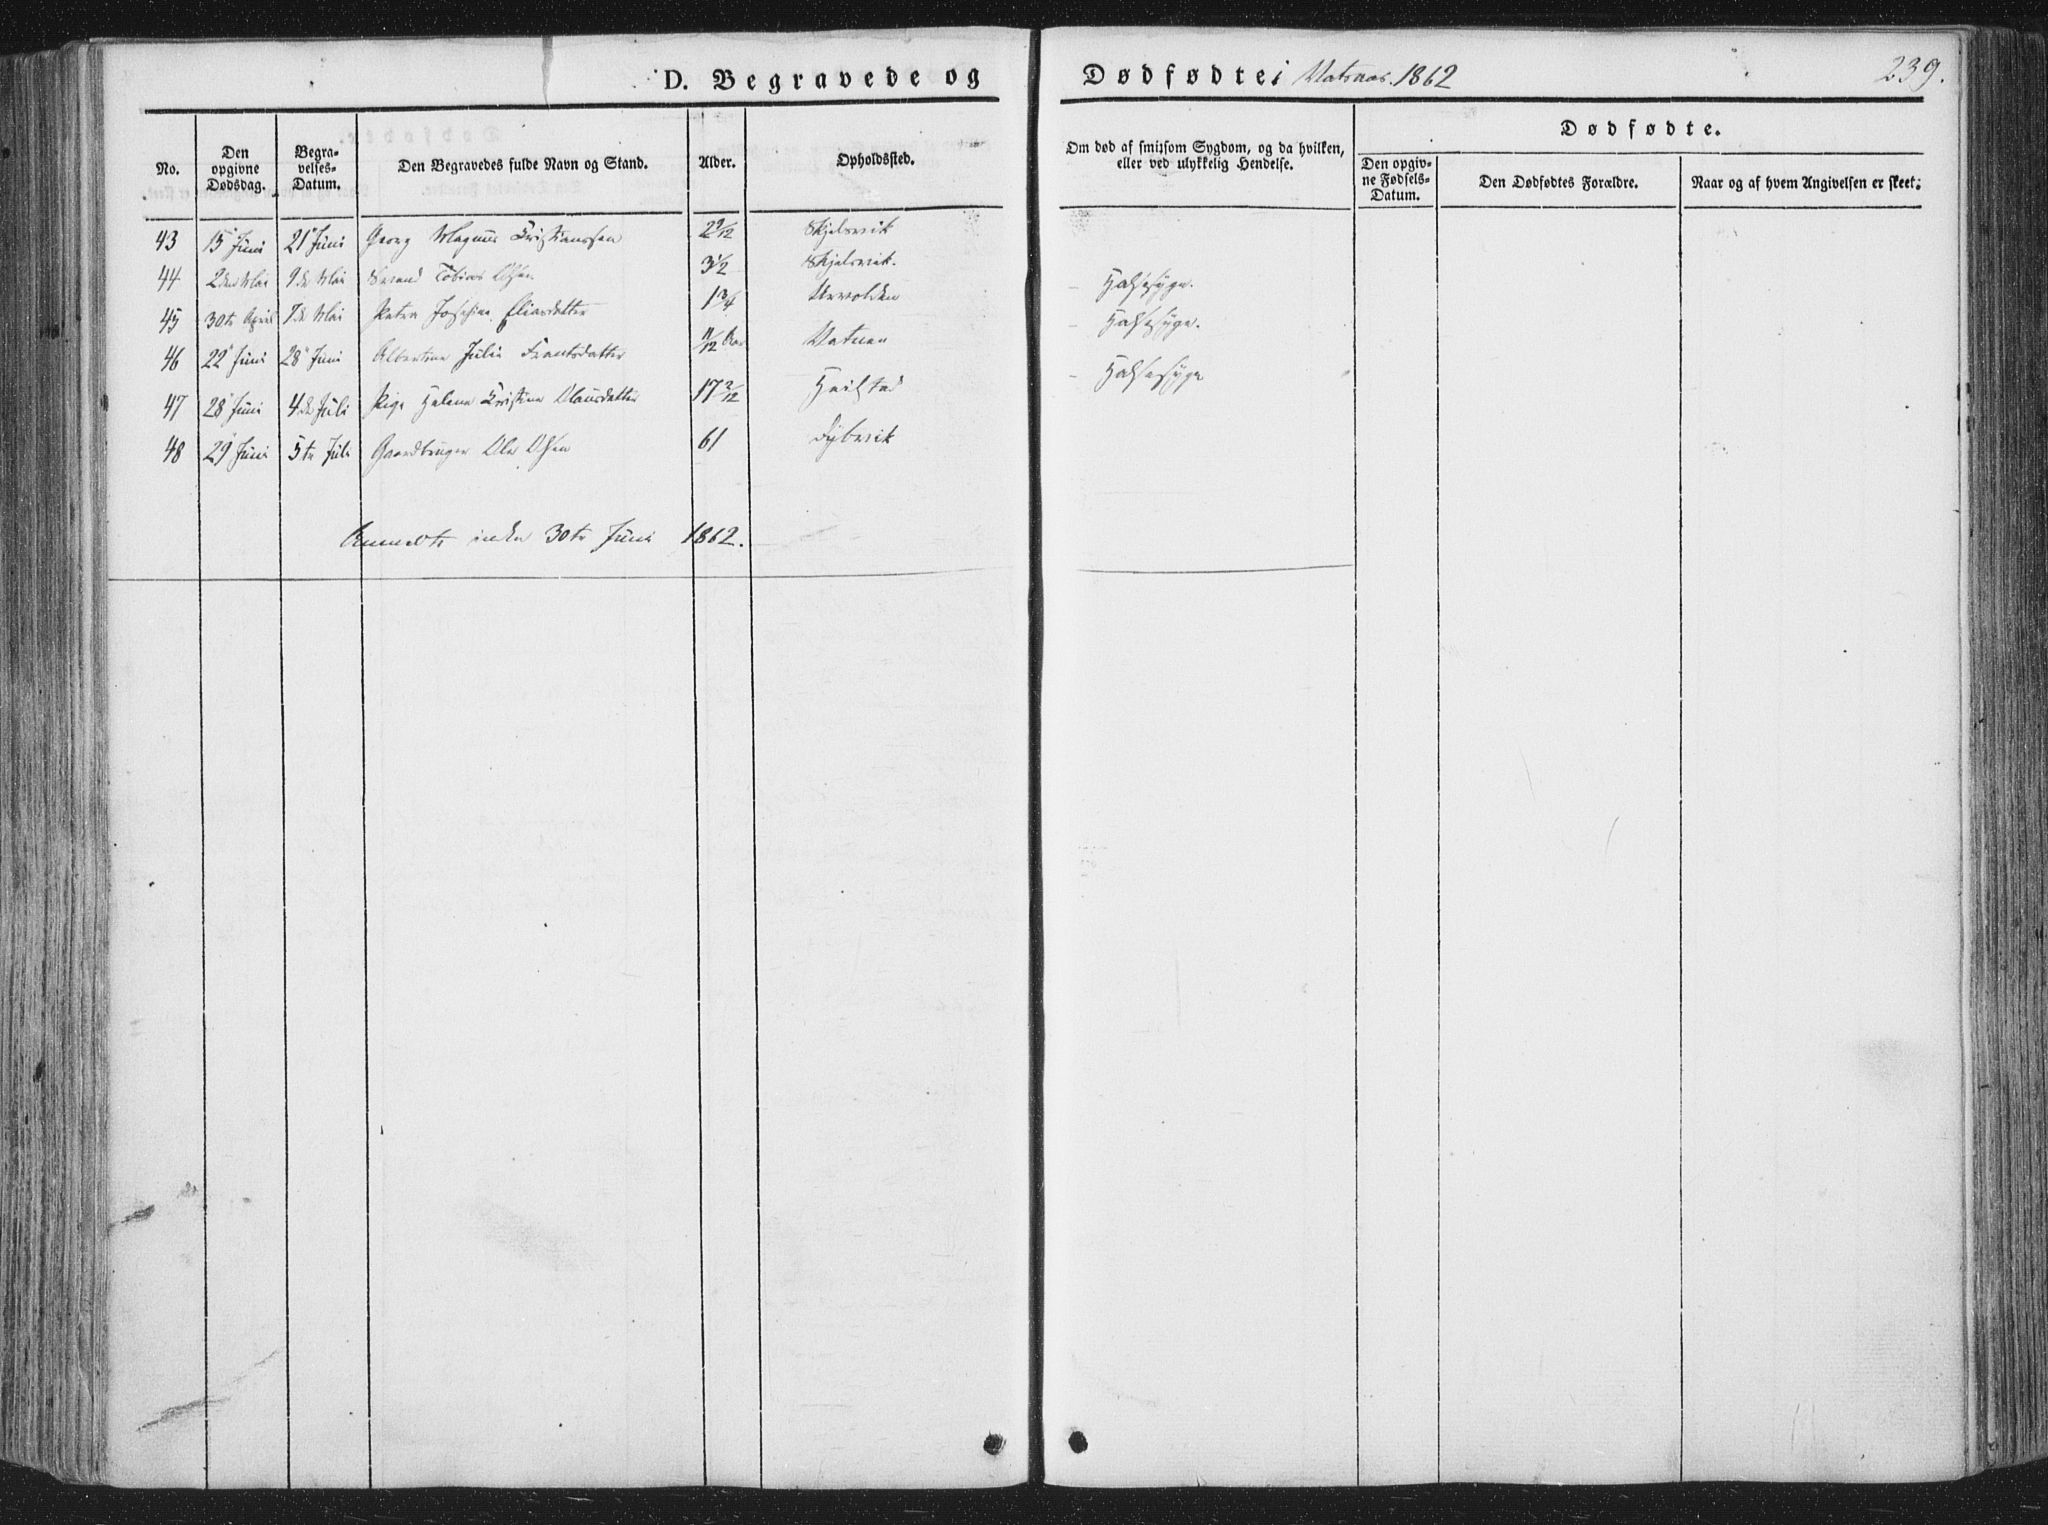 D. Begravede og Dødfødte i Vatsaas. 1862 239.
No. Den opgivne Dødsdag. Begravelses-Datum. Den Begravedes fulde Navn og Stand. Alder. Opholdssted. Om død af smitsom Sygdom, og da hvilken, eller ved ulykkelig Hendelse. Dødfødte. Den opgivne Fødsels-Datum. Den Dødfødtes Forældre. Naar og af hvem Angivelsen er skeet.
43 15 Juni 21 Juni Georg Magnus Cristianssen 2 9/12 Skjelsvik
44 2den Mai 9de Mai Tobias Olsen 3 1/2 Skjelsvik. - Halssyge.
45 30te April 7de Mai Petra Josefine Eliasdatter 1 3/4 Urvolden - Halssyge.
46 22 Juni 28 Juni Albertine Julie Frantsdatter 11/12 Aar Vatnen - Halssyge
47 28 Juni 4de Juli Pige Helene Cristine Olausdatter 17 2/12 Heilstad
48 29 Juni 5te Juli Gaardbruger Ole Olsen 61 Dybvik
Anmeldte inden 30te Juni 1862.